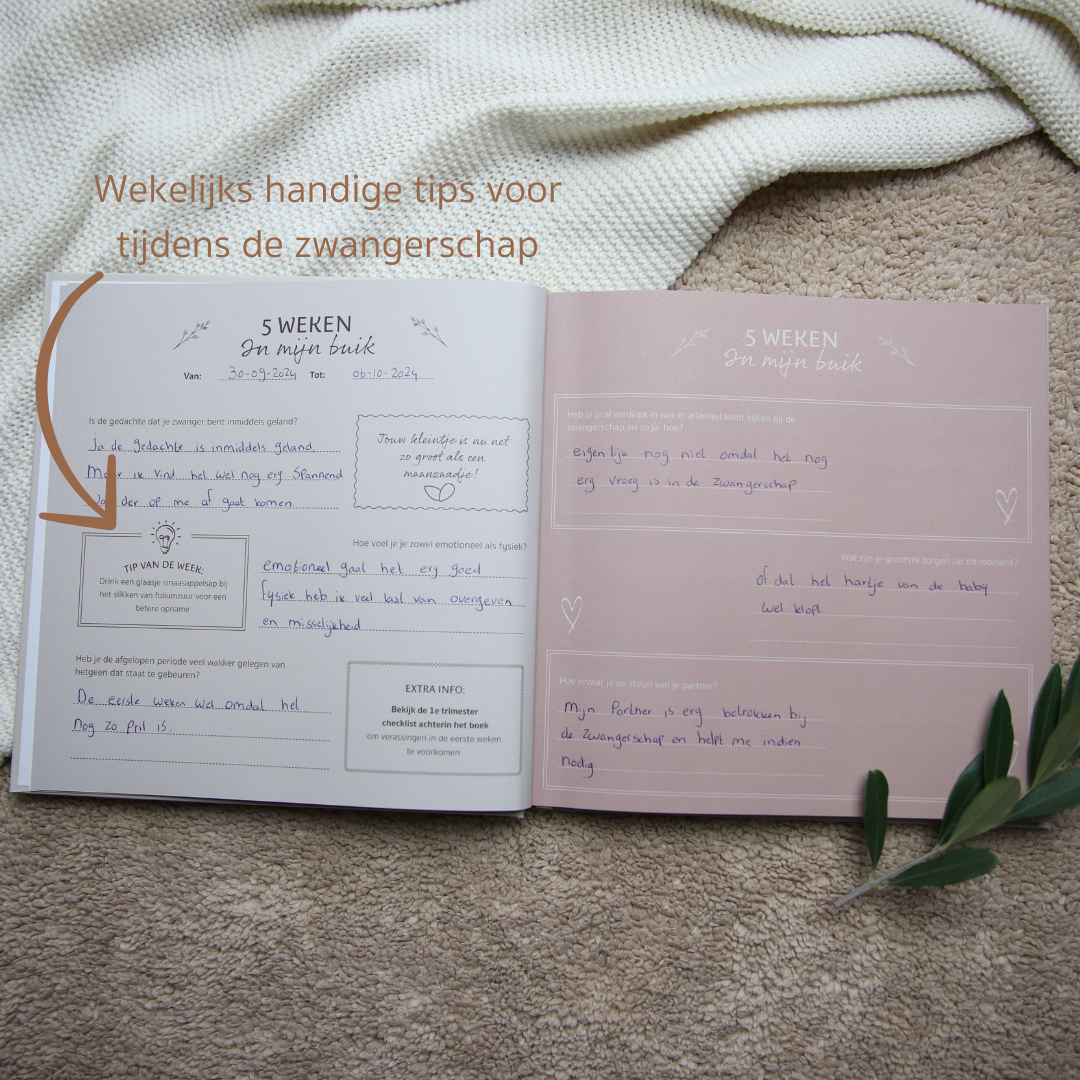 Wekelijks handige tips voor
tijdens de zwangerschap
5 WEKEN
In mijn buik
Van: 30-09-2024 Tot: 06-10-2024
Is de gedachte dat je zwanger bent inmiddels geland?
Ja de gedachte is inmiddels geland.
Maar ik vind het wel nog erg spannend
der op me af gaat komen
Jouw kleintje is nu net
zo groot als een
maanzaadje!
TIP VAN DE WEEK:
Drink een glaasje sinaasappelsap bij
het slikken van foliumzuur voor een
betere opname
Hoe voel je je zowel emotioneel als fysiek?
emotioneel gaat het erg goed
fysiek heb ik veel last van overgeven
en misselijkheid
Heb je de afgelopen periode veel wakker gelegen van
hetgeen dat staat te gebeuren?
De eerste weken wel omdat het
nog zo pril is.
EXTRA INFO:
Bekijk de 1e trimester
checklist achterin het boek
om verassingen in de eerste weken
te voorkomen
5 WEKEN
In mijn buik
Heb je je al verdiept in wat er allemaal komt kijken bij de
zwangerschap en zo ja, hoe?
eigenlijk nog niet omdat het nog
erg vroeg is in de zwangerschap
Wat zijn je grootste zorgen op dit moment?
of dat het hartje van de baby
wel klopt
Hoe ervaar je de steun van je partner?
Mijn Partner is erg betrokken bij
de zwangerschap en helpt me indien
nodig